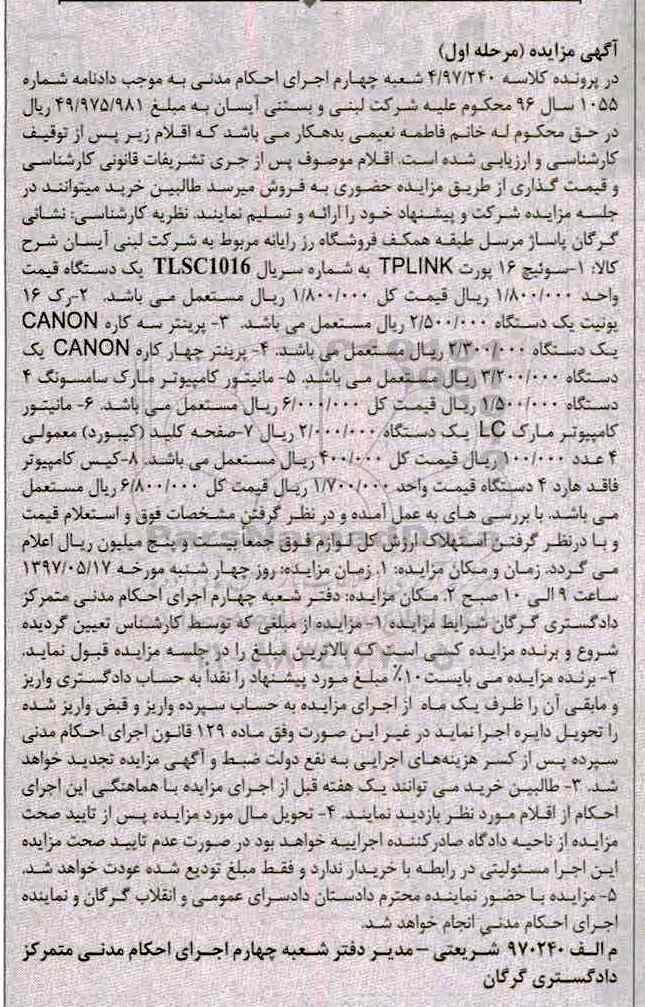 آگهی مزایده (مرحله اول)
در پرونده کلاسه ۴/۹۷/۲۴۰ شعبه چهارم اجرای احکام مدنی به موجب دادنامه شماره
۱۰۵۵ سال ۹۶ محکوم علیه شرکت لبنی و بستنی آیسان به مبلغ ۴۹/۹۷۵/۹۸۱ ریال
در حق محکوم له خانم فاطمه نعیمی بدهکار می باشد که اقلام زیر پس از توقیف
کارشناسی و ارزیابی شده است. اقلام موصوف پس از جری تشریفات قانونی کارشناسی
و قیمت گذاری از طریق مزایده حضوری به فروش میرسد طالبین خرید میتوانند در
جلسه مزایده شرکت و پیشنهاد خود را ارائه و تسلیم نمایند. نظریه کارشناسی: نشانی
گرگان پاساژ مرسل طبقه همکف فروشگاه رز رایانه مربوط به شرکت لبنی آیسان شرح
کالا: ۱-سوئیچ ۱۶ پورت TPLINK به شماره سریال TLSC1016 یک دستگاه قیمت
واحد ۱/۸۰۰/۰۰۰ ریال قیمت کل ۱/۸۰۰/۰۰۰ ریال مستعمل می باشد. ۲-رک ۱۶
یونیت یک دستگاه ۲/۵۰۰/۰۰۰ ریال مستعمل می باشد. ۳- پرینتر سه کاره CANON
یک دستگاه ۲/۳۰۰/۰۰۰ ریال مستعمل می باشد. ۴- پرینتر چهار کاره CANON یک
دستگاه ۳/۲۰۰/۰۰۰ ریال مستعمل می باشد. ۵- مانیتور کامپیوتر مارک سامسونگ ۴
دستگاه ۱/۵۰۰/۰۰۰ ریال قیمت کل ۶/۰۰۰/۰۰۰ ریال مستعمل می باشد. ۶- مانیتور
کامپیوتر مارک LC یک دستگاه ۲/۰۰۰/۰۰۰ ریال ۷-صفحه کلید (کیبورد) معمولی
۴ عدد ۱۰۰/۰۰۰ ریال قیمت کل ۴۰۰/۰۰۰ ریال مستعمل می باشد. ۸-کیس کامپیوتر
فاقد هارد ۴ دستگاه قیمت واحد ۱/۷۰۰/۰۰۰ ریال قیمت کل ۶/۸۰۰/۰۰۰ ریال مستعمل
می باشد. با بررسی های به عمل آمده و در نظر گرفتن مشخصات فوق و استعلام قیمت
و با درنظر گرفتن استهلاک ارزش کل لوازم فوق جمعا بیست و پنج میلیون ریال اعلام
می گردد. زمان و مکان مزایده: ۱. زمان مزایده: روز چهار شنبه مورخه ۱۳۹۷/۰۵/۱۷
ساعت ۹ الی ۱۰ صبح ۲. مکان مزایده: دفتر شعبه چهارم اجرای احکام مدنی متمرکز
دادگستری گرگان شرایط مزایده ۱- مزایده از مبلغی که توسط کارشناس تعیین گردیده
شروع و برنده مزایده کسی است که بالاترین مبلغ را در جلسه مزایده قبول نماید.
۲- برنده مزایده می بایست ۱۰٪ مبلغ مورد پیشنهاد را نقداً به حساب دادگستری واریز
و مابقی آن را ظرف یک ماه از اجرای مزایده به حساب سپرده واریز و قبض واریز شده
را تحویل دایره اجرا نماید در غیر این صورت وفق ماده ۱۲۹ قانون اجرای احکام مدنی
سپرده پس از کسر هزینه‌های اجرایی به نفع دولت ضبط و آگهی مزایده تجدید خواهد
شد. ۳- طالبین خرید می توانند یک هفته قبل از اجرای مزایده با هماهنگی این اجرای
احکام از اقلام مورد نظر بازدید نمایند. ۴- تحویل مال مورد مزایده پس از تایید صحت
مزایده از ناحیه دادگاه صادرکننده اجراییه خواهد بود در صورت عدم تایید صحت مزایده
این اجرا مسئولیتی در رابطه با خریدار ندارد و فقط مبلغ تودیع شده عودت خواهد شد.
۵- مزایده با حضور نماینده محترم دادستان دادسرای عمومی و انقلاب گرگان و نماینده
اجرای احکام مدنی انجام خواهد شد.
م الف ۹۷۰۲۴۰ شریعتی - مدیر دفتر شعبه چهارم اجرای احکام مدنی متمرکز
دادگستری گرگان